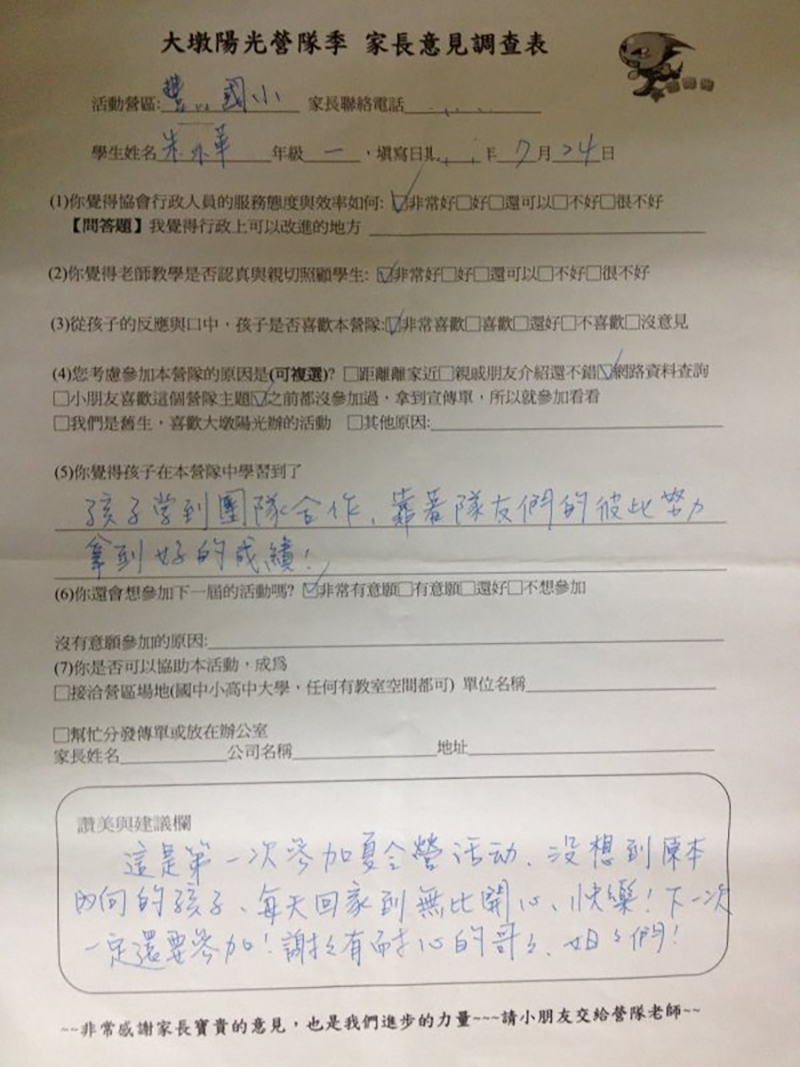 大墩陽光營隊季 家長意見調查表
活動營區:豐山國小 家長聯絡電話
學生姓名 朱永華 年級 一 ,填寫日期 年 7 月 24 日
(1)你覺得協會行政人員的服務態度與效率如何:☑非常好□好□還可以□不好□很不好
【問答題】我覺得行政上可以改進的地方
(2)你覺得老師教學是否認真與親切照顧學生:☑非常好□好□還可以□不好□很不好
(3)從孩子的反應與口中,孩子是否喜歡本營隊:☑非常喜歡□喜歡□還好□不喜歡□沒意見
(4)您考慮參加本營隊的原因是(可複選)? □距離離家近□親戚朋友介紹還不錯☑網路資料查詢
□小朋友喜歡這個營隊主題☑之前都沒參加過,拿到宣傳單,所以就參加看看
□我們是舊生,喜歡大墩陽光辦的活動 □其他原因:
(5)你覺得孩子在本營隊中學習到了
孩子学到團隊合作、靠著隊友們的彼此努力
拿到好的成績!
(6)你還會想參加下一屆的活動嗎? ☑非常有意願□有意願□還好□不想參加
沒有意願參加的原因:
(7)你是否可以協助本活動,成為
□接洽營區場地(國中小高中大學,任何有教室空間都可) 單位名稱
□幫忙分發傳單或放在辦公室
家長姓名 公司名稱 地址
讚美與建議欄
這是第一次參加夏令營活动、沒想到原本
內向的孩子、每天回家到無比開心、快樂!下一次
一定還要參加!謝謝有耐心的哥哥、姐姐們!
~~非常感謝家長寶貴的意見,也是我們進步的力量~~~請小朋友交給營隊老師~~